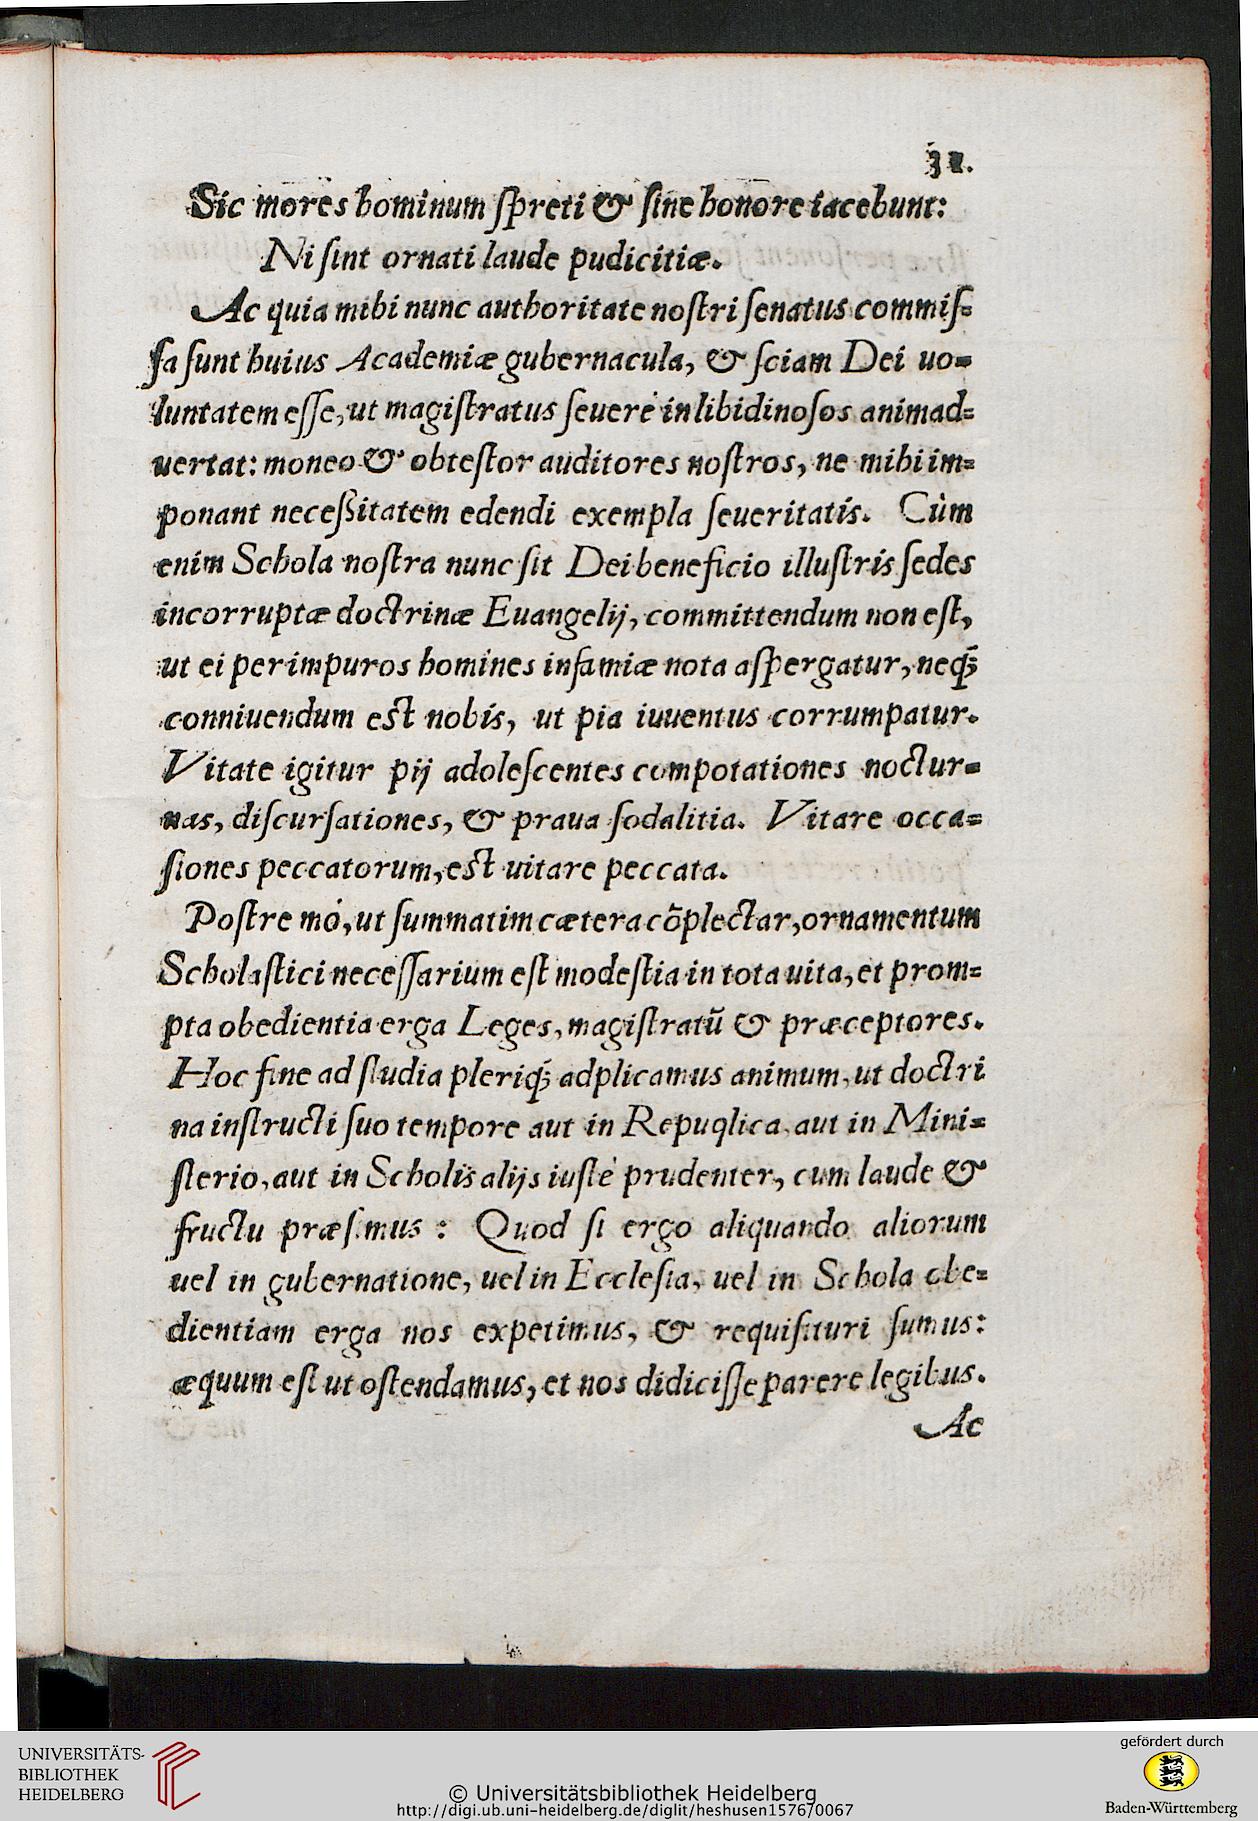 32.
Sic mores hominum ſpreti & ſine honore iacebunt:
Ni ſint ornati laude pudicitiæ.
Ac quia mihi nunc authoritate noſtri ſenatus commiſ=
ſa ſunt huius Academiæ gubernacula, & ſciam Dei uo=
luntatem eſſe, ut magiſtratus ſeuerè in libidinoſos animad=
uertat: moneo & obteſtor auditores noſtros, ne mihi im=
ponant neceßitatem edendi exempla ſeueritatis. Cùm
enim Schola noſtra nunc ſit Dei beneficio illuſtris ſedes
incorruptæ doctrinæ Euangelij, committendum non eſt,
ut ei per impuros homines infamiæ nota aſpergatur, neq́;
conniuendum eſt nobis, ut pia iuuentus corrumpatur.
Vitate igitur pij adoleſcentes compotationes noctur=
nas, diſcurſationes, & praua ſodalitia. Vitare occa=
ſiones peccatorum, eſt uitare peccata.
Poſtremò, ut ſummatim cætera cõplectar, ornamentum
Scholaſtici neceſſarium eſt modeſtia in tota uita, et prom=
pta obedientia erga Leges, magiſtratũ & præceptores.
Hoc fine ad ſtudia pleriq́; adplicamus animum, ut doctri
na inſtructi ſuo tempore aut in Repuqlica, aut in Mini=
ſterio, aut in Scholis alijs iuſtè prudenter, cum laude &
fructu præſimus : Quod ſi ergo aliquando aliorum
uel in gubernatione, uel in Eccleſia, uel in Schola obe=
dientiam erga nos expetimus, & requiſituri ſumus:
æquum eſt ut oſtendamus, et nos didiciſſe parere legibus.
Ac
UNIVERSITÄTS-
BIBLIOTHEK
HEIDELBERG
© Universitätsbibliothek Heidelberg
http://digi.ub.uni-heidelberg.de/diglit/heshusen157670067
gefördert durch
Baden-Württemberg